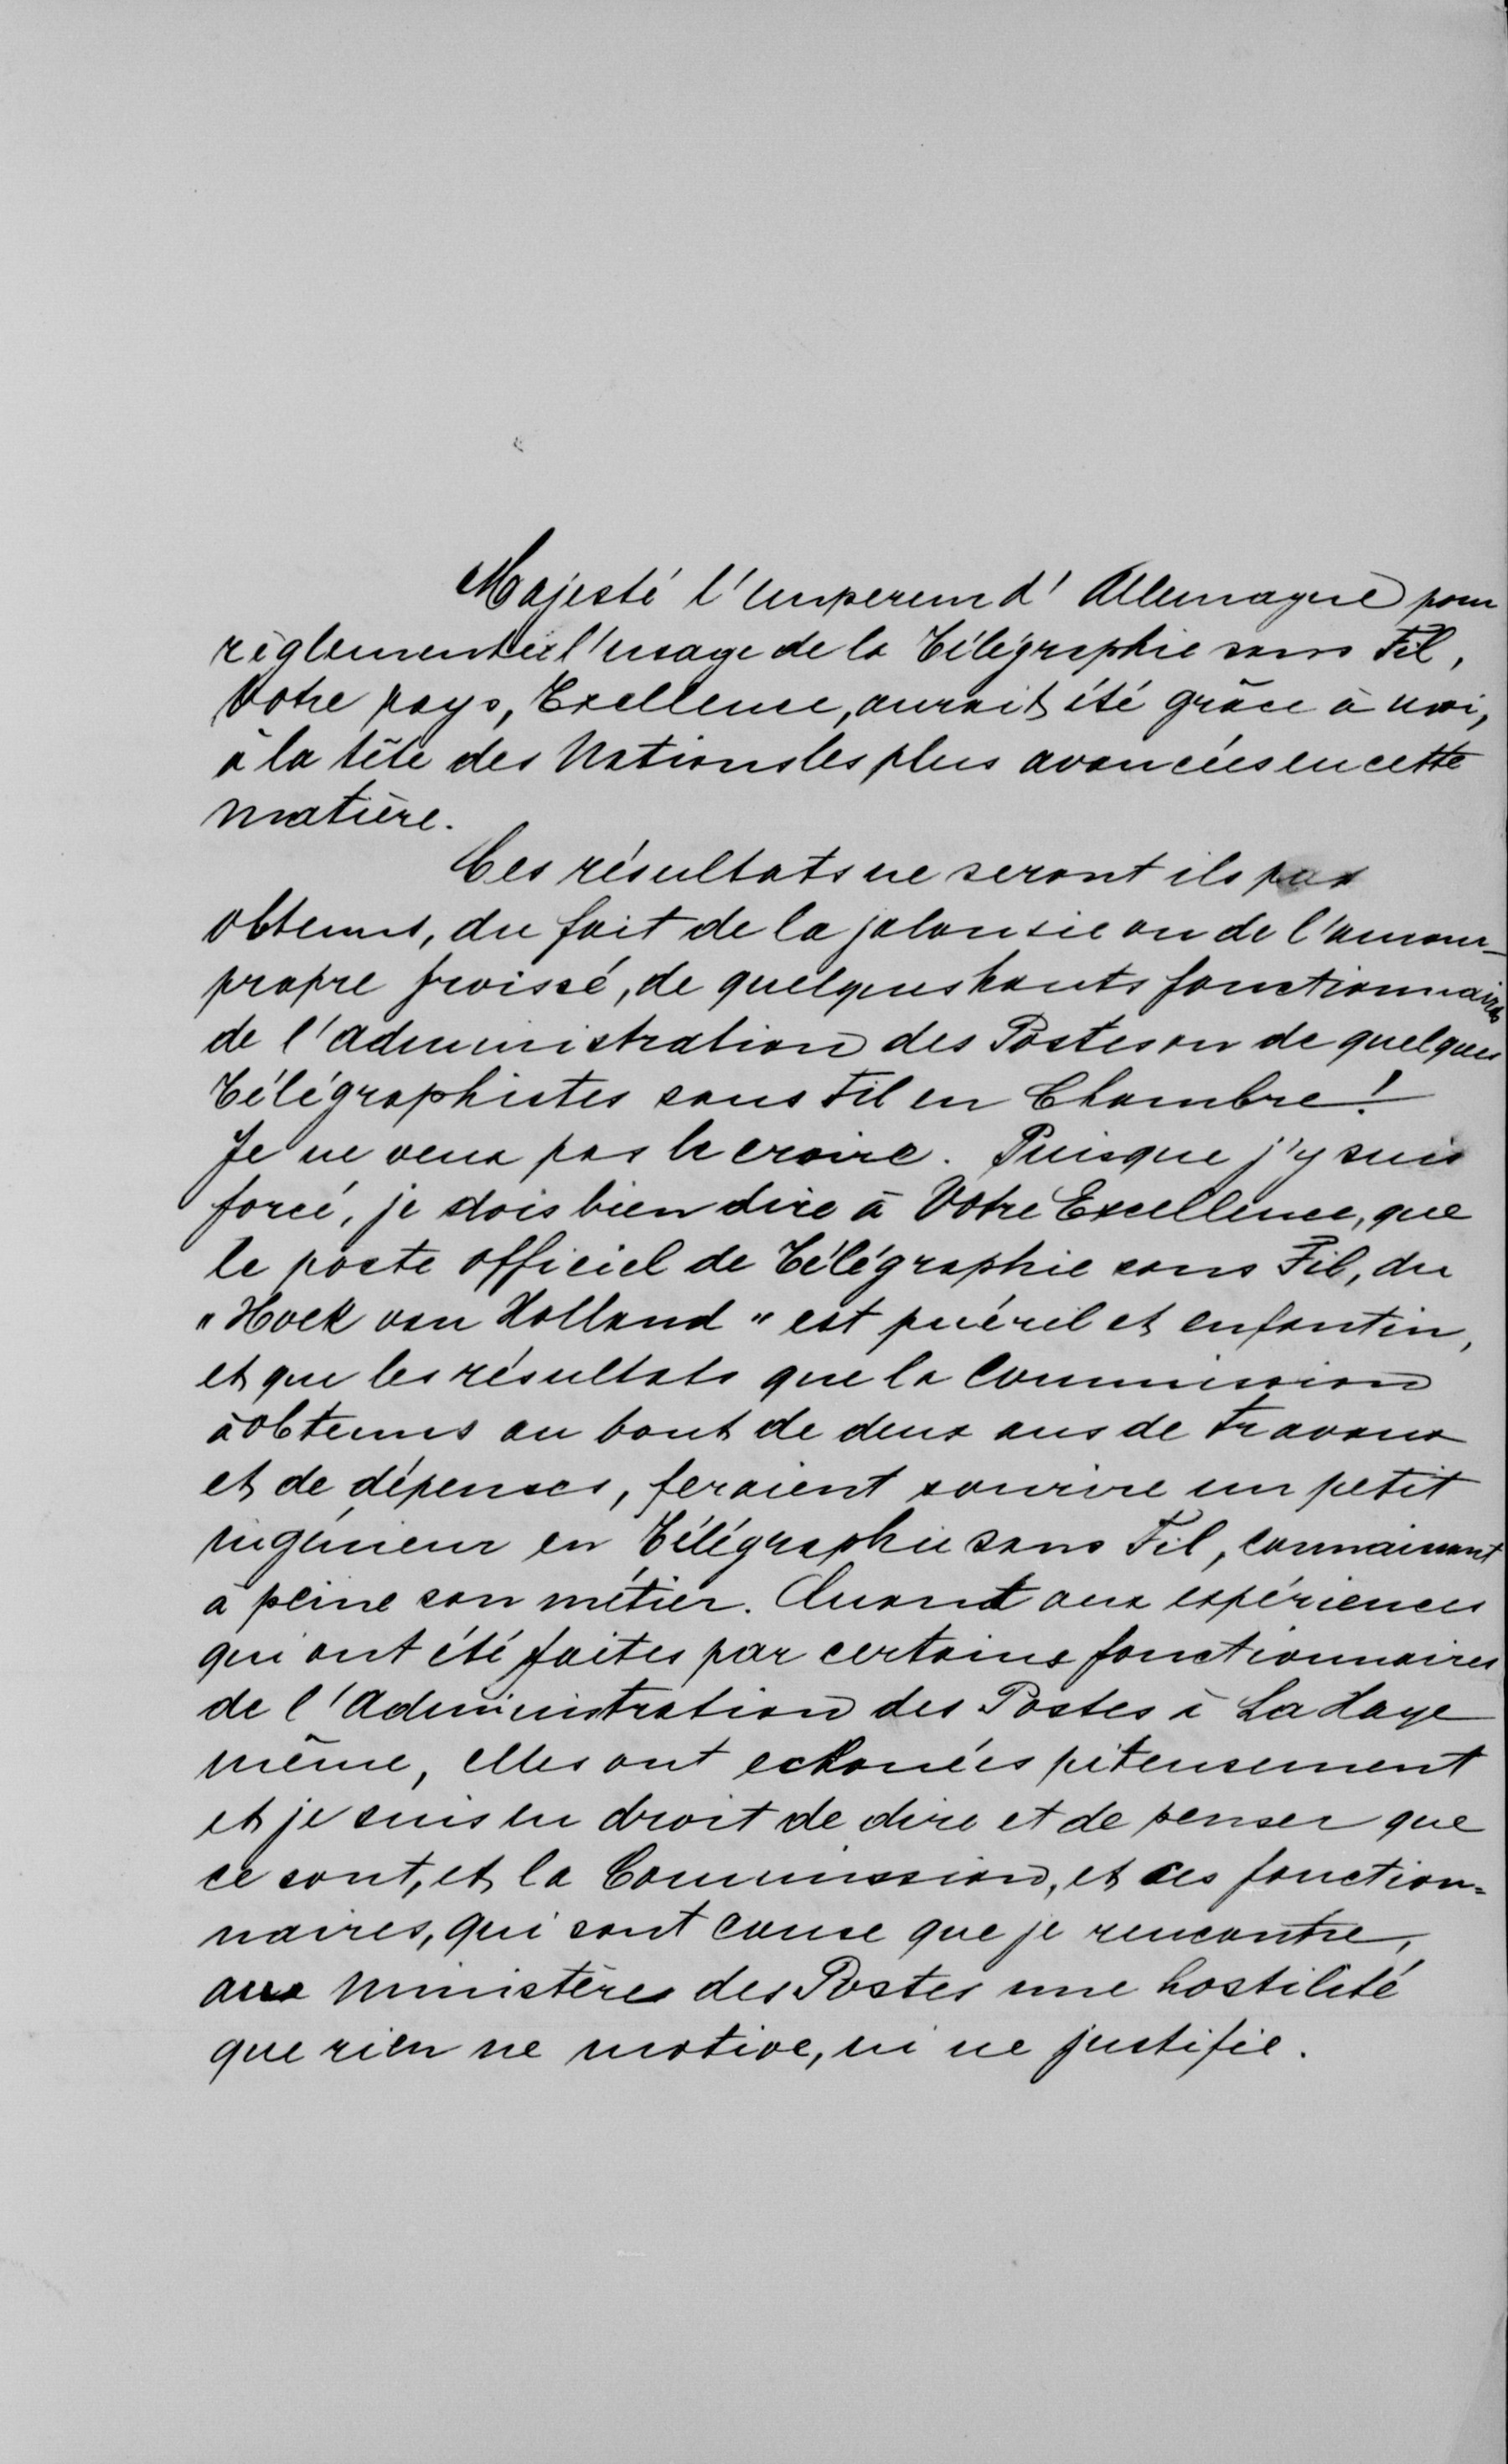 Majesté l'Empereur d'Allemagne pour
règlementer l'usage de la Télégraphie sans Fil,
Votre pays, Excellence, aurait été grâce à moi,
à la tête des Nations les plus avancées en cette
matière.
Ces résultats ne seront ils pas
obtenus, du fait de la jalousie ou de l'amour-
propre froissé, de quelques hauts fonctionnaires
de l'Administration des Postes ou de quelques
Télégraphistes sans Fil en Chambre!
Je ne veux pas le croire. Puisque j'y suis
forcé, je dois bien dire à Votre Excellence, que
le poste officiel de Télégraphie sans Fil, du
"Hoek van Holland" est puéril et enfantin,
et que les résultats que la Commission
a obtenus au bout de deux ans de travaux
et de dépenses, feraient sourire un petit
ingénieur en Télégraphie sans Fil, connaissant
à peine son métier. Quant aux expériences
qui ont été faites par certains fonctionnaires
de l'Administration des Postes à La Haye
même, elles ont echouées piteusement
et je suis en droit de dire et de penser que
ce sont, et la Commission, et ces fonction=
naires, qui sont cause que je rencontre,
aux Ministères des Postes une hostilité
que rien ne motive, ni ne justifie.